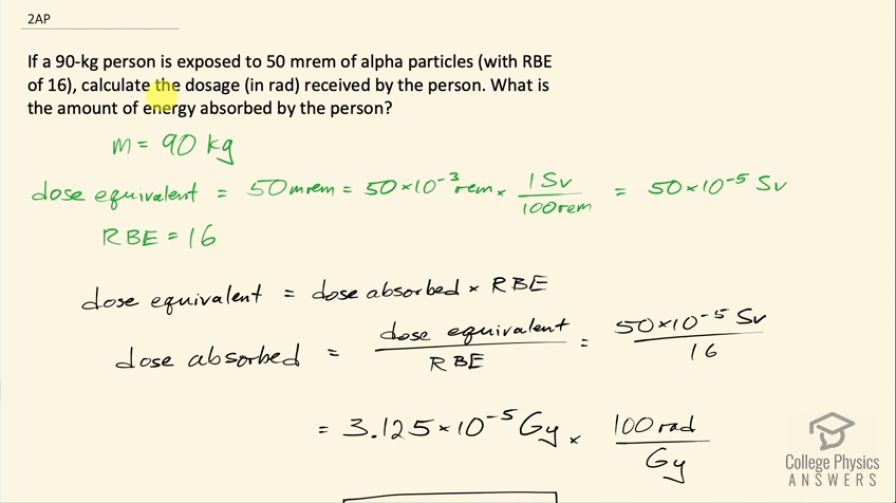 2AP
If a 90-kg person is exposed to 50 mrem of alpha particles (with RBE
of 16), calculate the dosage (in rad) received by the person. What is
the amount of energy absorbed by the person?
m = 90 kg
dose equivalent = 50 mrem = 50 × 10⁻³ rem × 1 Sv / 100 rem = 50 × 10⁻⁵ Sv
RBE = 16
dose equivalent = dose absorbed × RBE
dose absorbed = dose equivalent / RBE = 50 × 10⁻⁵ Sv / 16
= 3.125 × 10⁻⁵ Gy × 100 rad / Gy
College Physics
ANSWERS